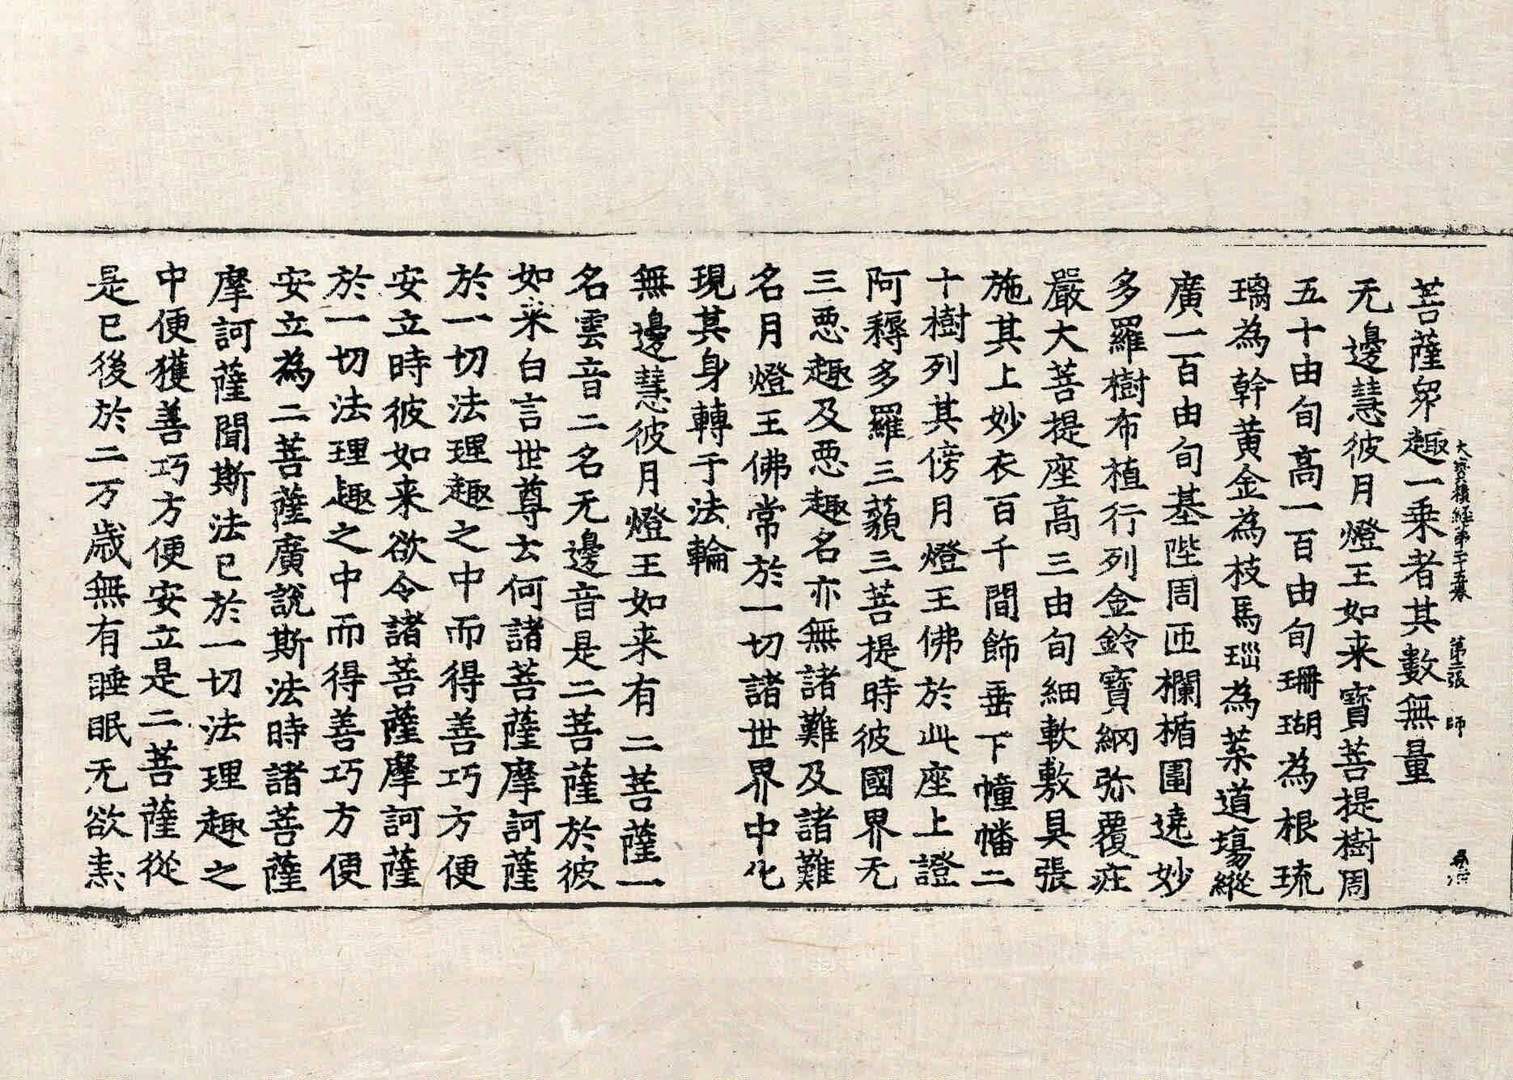 大寶積経第二十五卷 第三張 師
菩薩衆趣一乗者其數無量
无邊慧彼月燈王如来寶菩提樹周
五十由旬高一百由旬珊瑚為根琉
璃為幹黃金為枝馬瑙為葉道場縱
廣一百由旬基陛周匝欄楯圍遶妙
多羅樹布植行列金鈴寶網弥覆莊
嚴大菩提座高三由旬細軟敷具張
施其上妙衣百千間飾垂下幢幡二
十樹列其傍月燈王佛於此座上證
阿耨多羅三藐三菩提時彼國界无
三惡趣及惡趣名亦無諸難及諸難
名月燈王佛常於一切諸世界中化
現其身轉于法輪
無邊慧彼月燈王如来有二菩薩一
名雲音二名无邊音是二菩薩於彼
如来白言世尊云何諸菩薩摩訶薩
於一切法理趣之中而得善巧方便
安立時彼如来欲令諸菩薩摩訶薩
於一切法理趣之中而得善巧方便
安立為二菩薩廣說斯法時諸菩薩
摩訶薩聞斯法已於一切法理趣之
中便獲善巧方便安立是二菩薩從
是已後於二万歳無有睡眠无欲恚